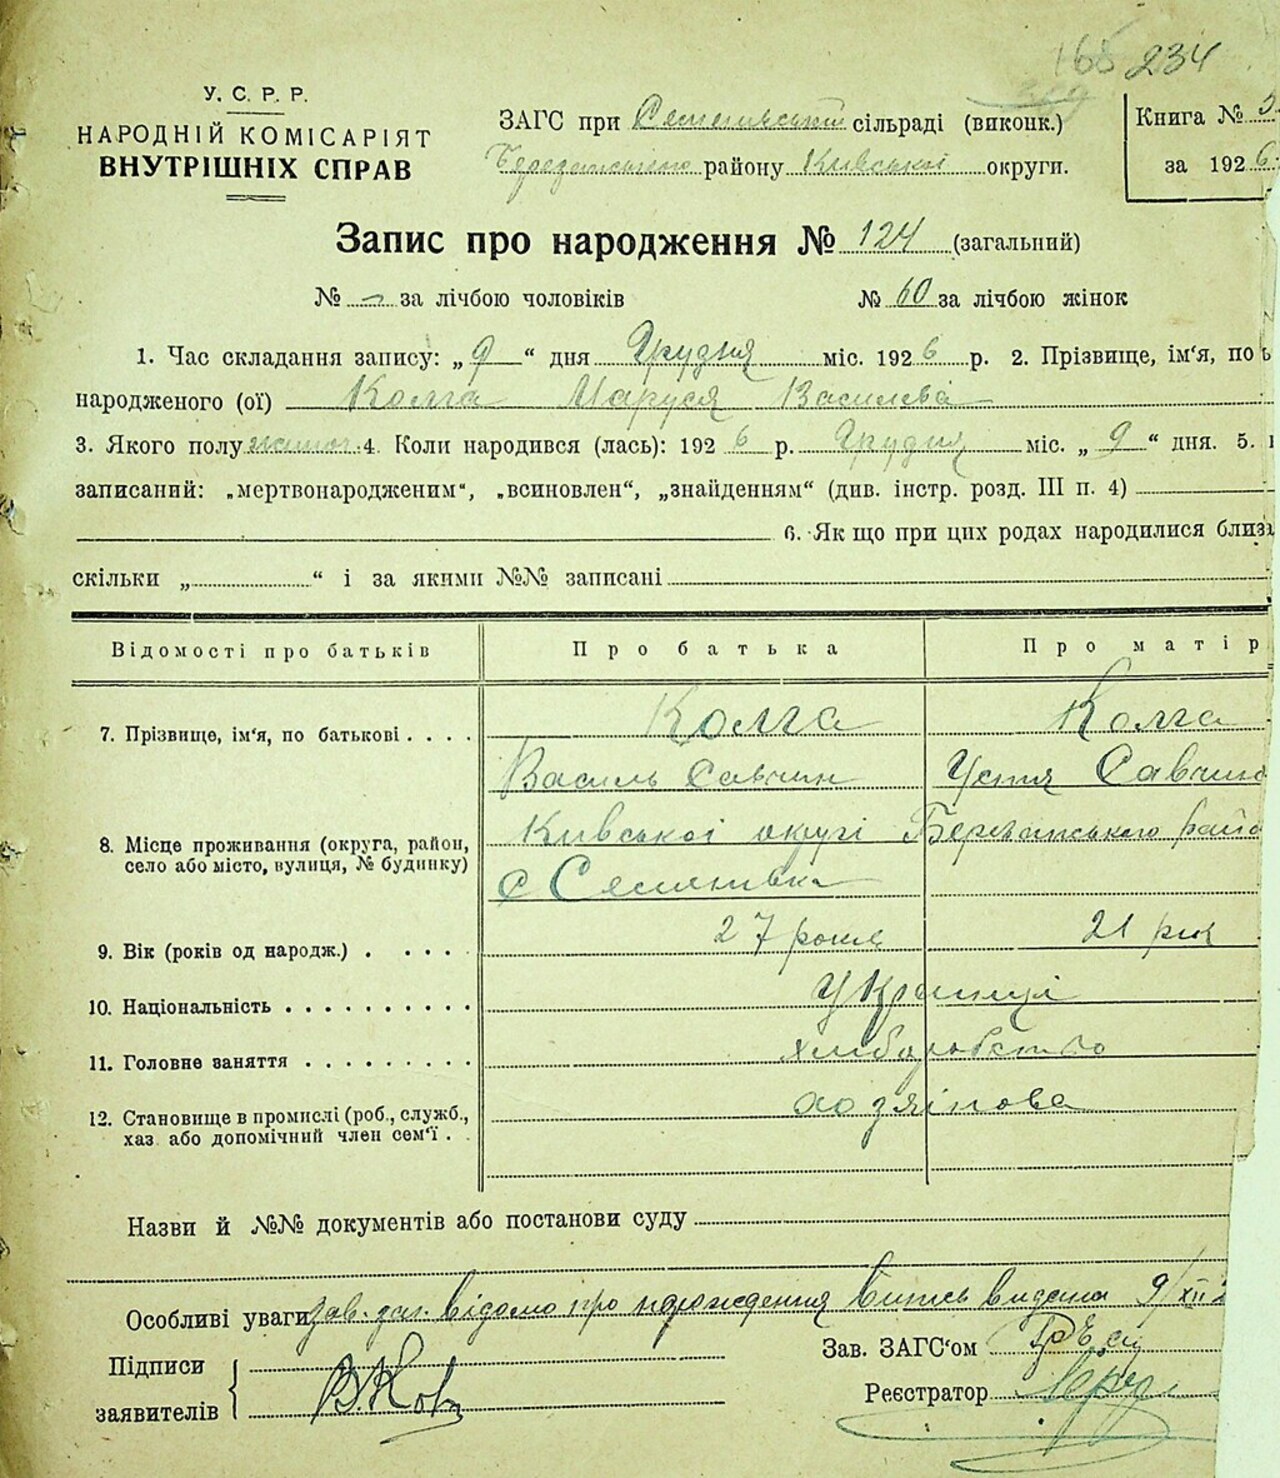 168 234
У. С. Р. Р.
НАРОДНІЙ КОМІСАРІЯТ
ВНУТРІШНІХ СПРАВ
ЗАГС при Семенівській сільраді (виконк.)
Березанського району Київської округи.
Книга № 5
за 1926
Запис про народження № 124 (загальний)
№ - за лічбою чоловіків № 60 за лічбою жінок
1. Час складання запису: „9“ дня Грудня міс. 1926 р. 2. Прізвище, ім'я, по
народженого (ої) Колга Маруся Василева
3. Якого полу жіноч. 4. Коли народився (лась): 1926 р. Грудня міс. „9“ дня. 5.
записаний: „мертвонародженим“, „всиновлен“, „знайденням“ (див. інстр. розд. III п. 4)
6. Як що при цих родах народилися близ
скільки „ “ і за якими №№ записані
Відомості про батьків Про батька Про матір
7. Прізвище, ім'я, по батькові Колга Колга
Василь Савчин Устя Савчин
8. Місце проживання (округа, район, село або місто, вулиця, № будинку) Київської округі Березанського райо
с Семенівка
9. Вік (років од народж.) 27 років 21 рік
10. Національність Українці
11. Головне заняття хліборобство
12. Становище в промислі (роб., служб., хаз або допомічний член сем'ї хозяїнова
Назви й №№ документів або постанови суду
Особливі уваги Зав. про народження Витяг видано 9/XII
Підписи
заявителів
Зав. ЗАГС'ом
Реєстратор